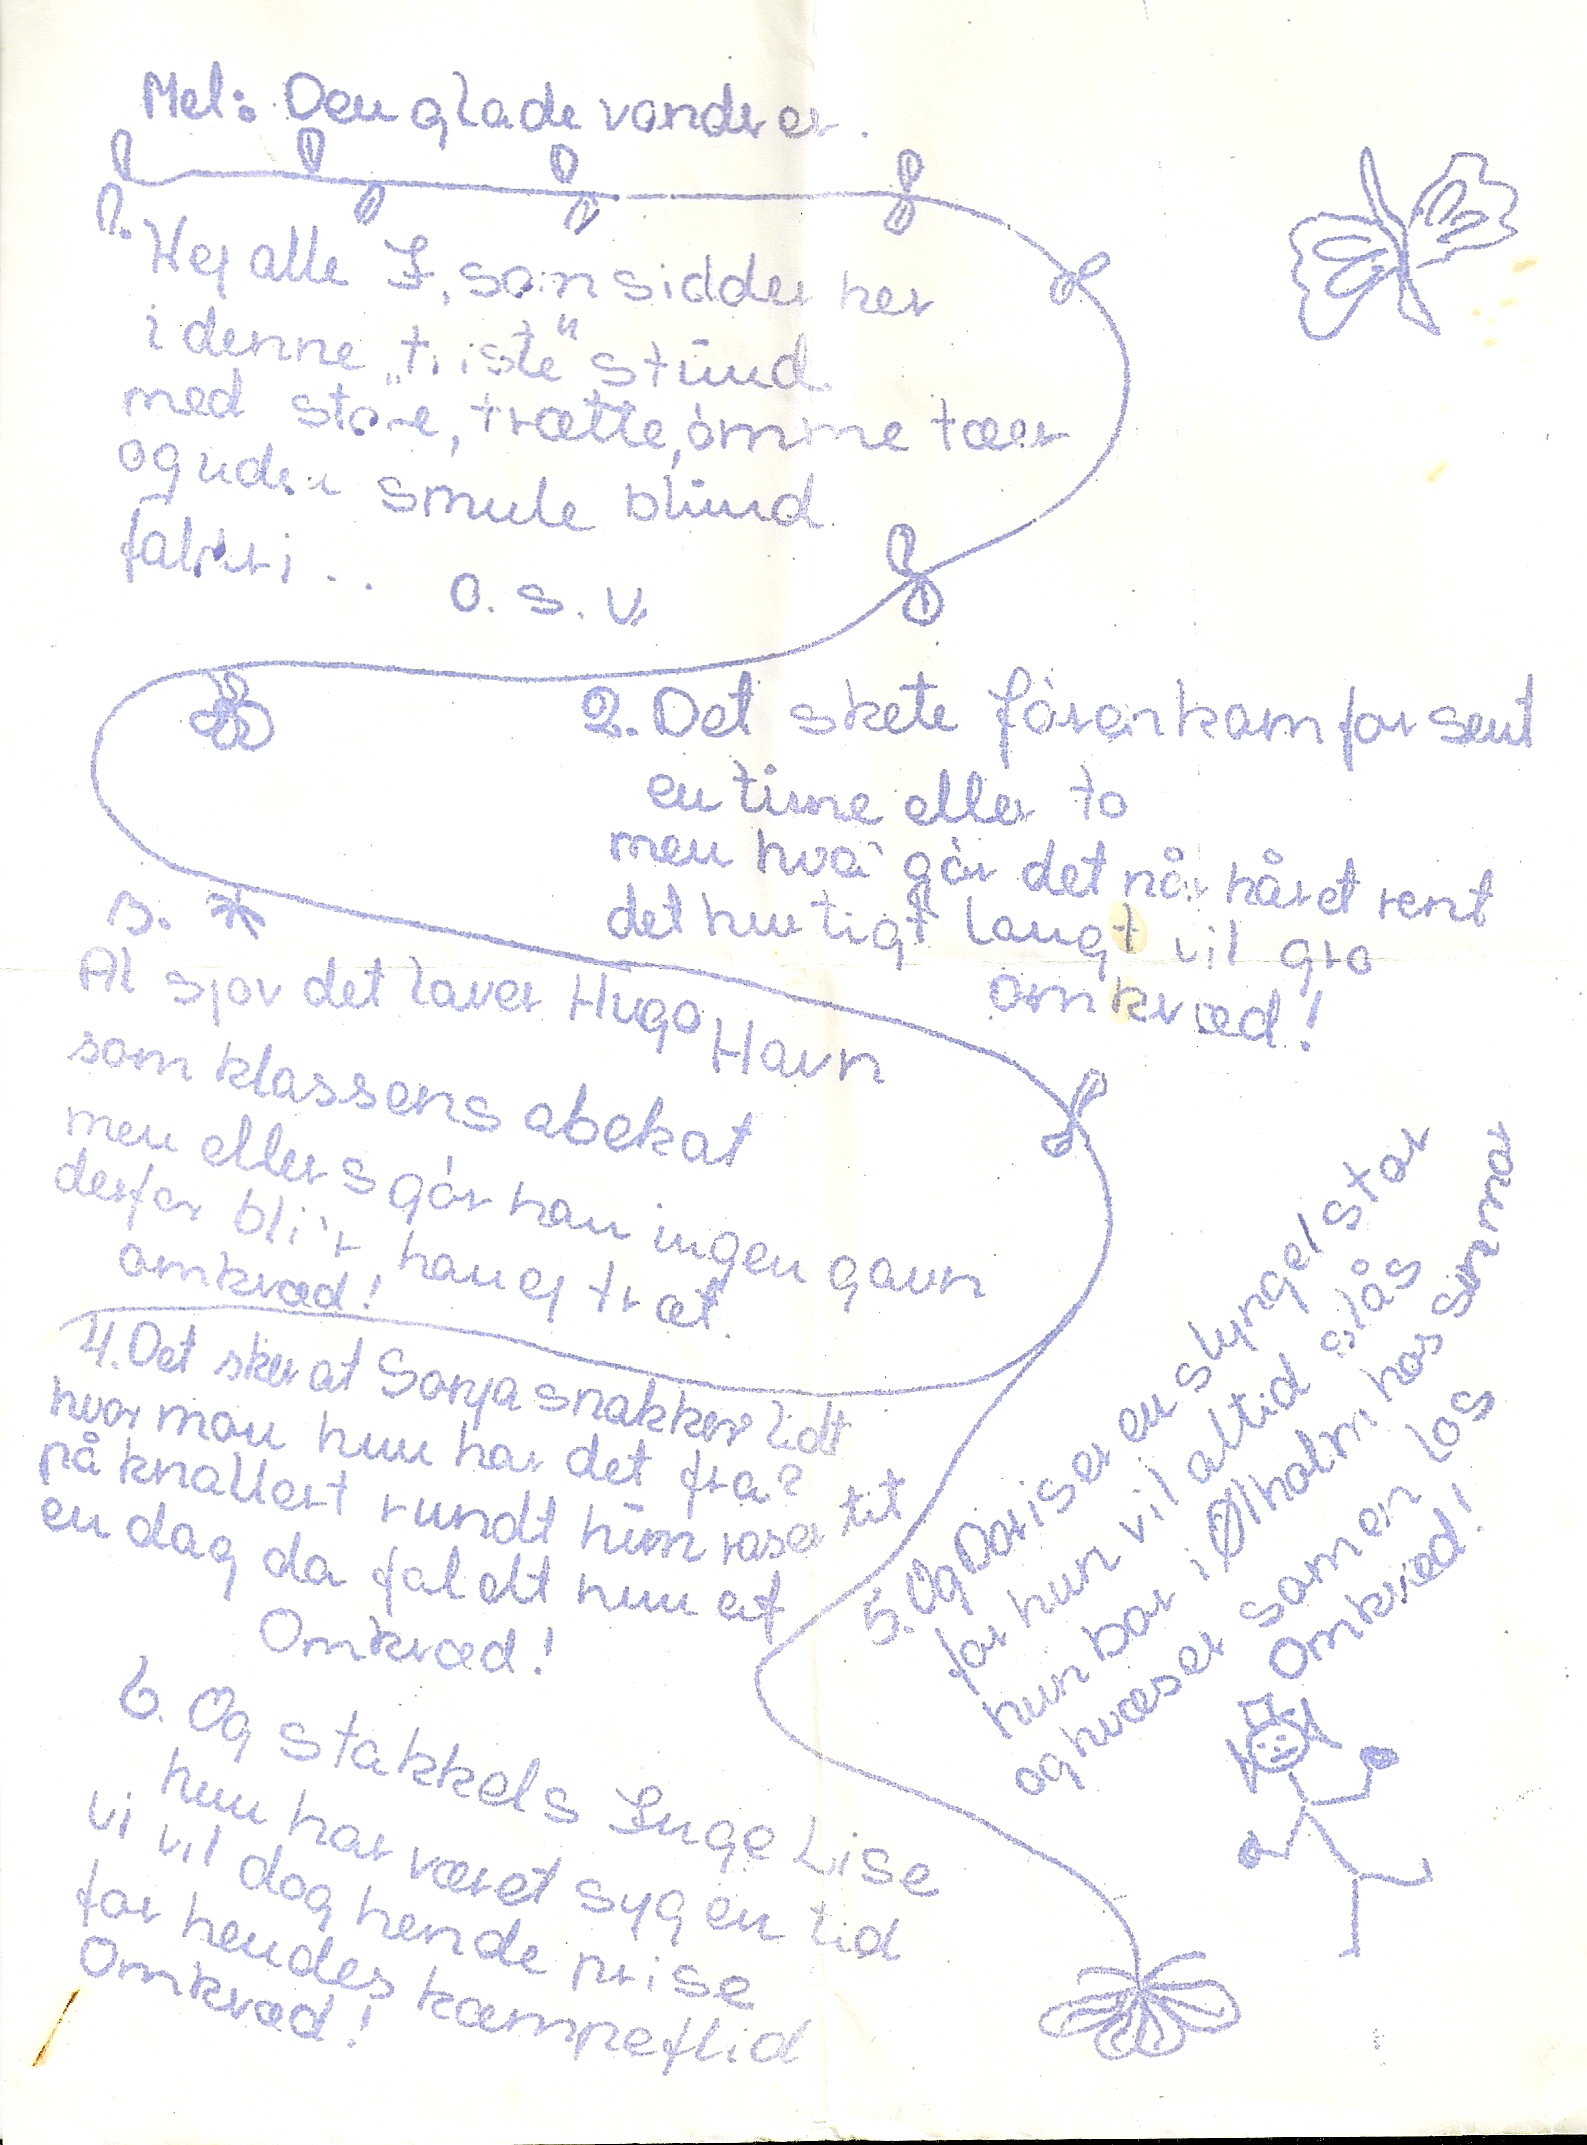 Mel: Den glade vandrer.
1. Hej alle I, som sidder her
i denne „triste" stund
med store, trætte, ømme tæer
og uden smule blund
falderi . . O. S. V.
2. Det skete før en kom for sent
en time eller to
men hva' gør det når håret rent
det hurtigt langt vil gro
omkvæd!
3.
Al sjov det laver Hugo Havn
som klassens abekat
men ellers gør han ingen gavn
derfor bli'r han ej træt.
omkvæd!
4. Det sker at Sonja snakker lidt
hvor mon hun har det fra?
på knallert rundt hun raser tit
en dag da faldt hun af
Omkvæd!
5. Og Doris er en slyngel stor
for hun vil altid slås
hun bor i Ølholm hos sin mor
og hvæser som en los
Omkvæd!
6. Og stakkels Inge Lise
hun har været syg en tid
vi vil dog hende prise
for hendes kæmpeflid
Omkvæd!